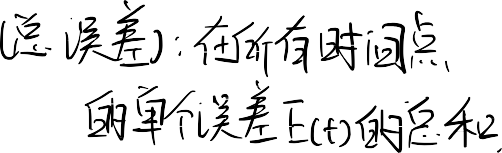 (总误差):在所有时间点
的单个误差E(t)的总和.